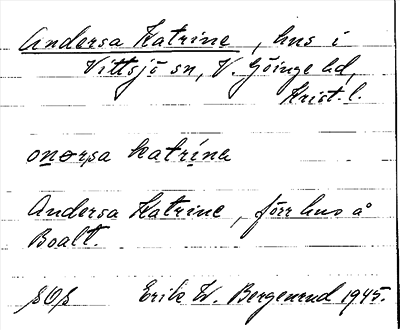 Andersa Katrine, hus i
Vittsjö sn, V. Göinge hd,
Krist. l.
anersa katrina
Andersa Katrine, förr hus å
Boalt.
Erik W. Bergenrud 1945.